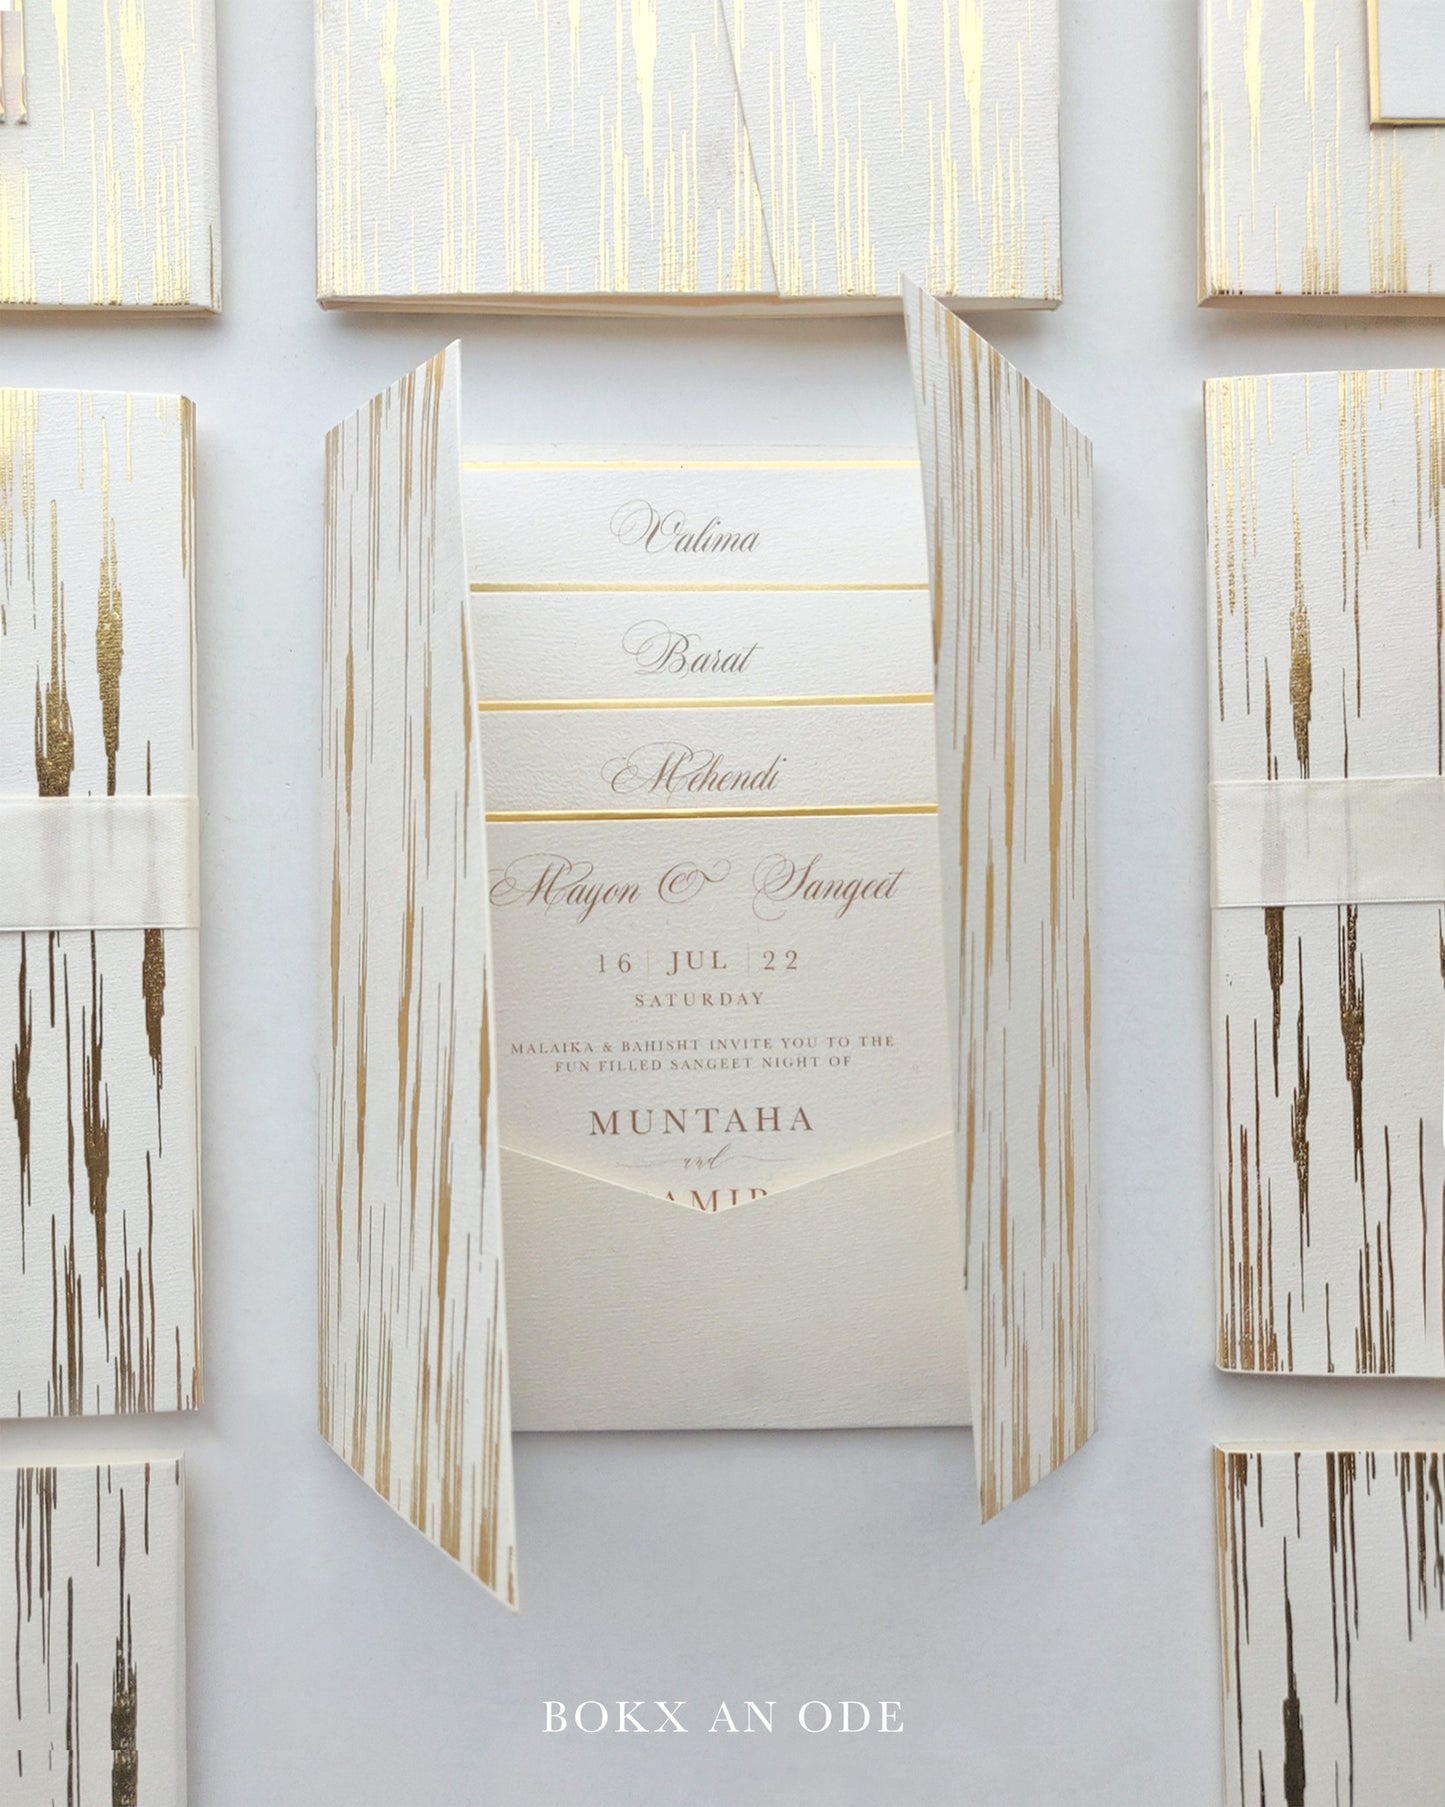 Valima
Barat
Mehendi
Mayon & Sangeet
16 | JUL | 22
SATURDAY
MALAIKA & BAHISHT INVITE YOU TO THE
FUN FILLED SANGEET NIGHT OF
MUNTAHA
and
BOKX AN ODE